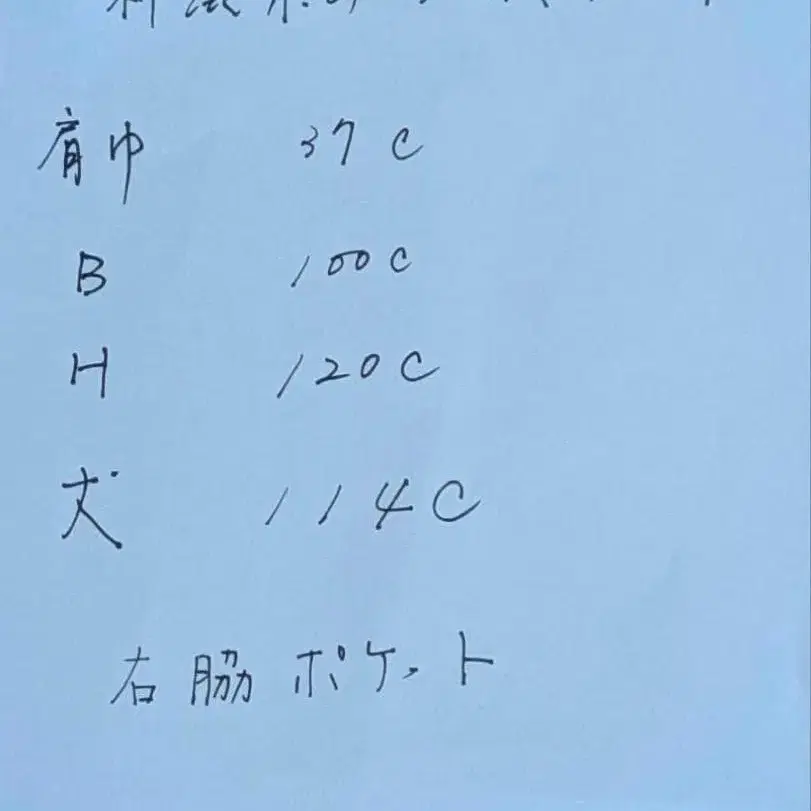 肩巾 37c
B 100c
H 120c
丈 114c
右脇ポケット